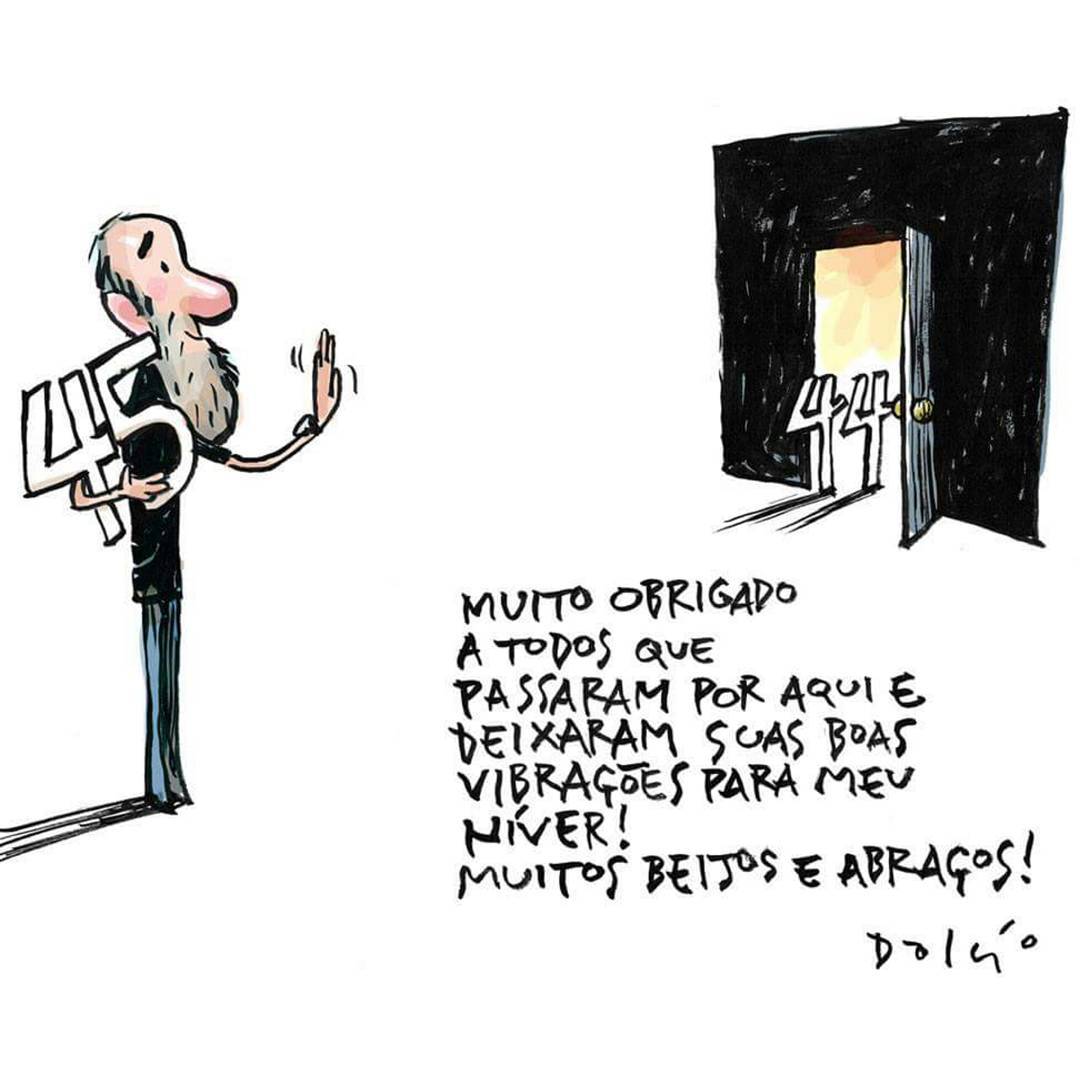 45
44
MUITO OBRIGADO
A TODOS QUE
PASSARAM POR AQUI E
DEIXARAM SUAS BOAS
VIBRAÇÕES PARA MEU
NÍVER!
MUITOS BEIJOS E ABRAÇOS!
Dalcío